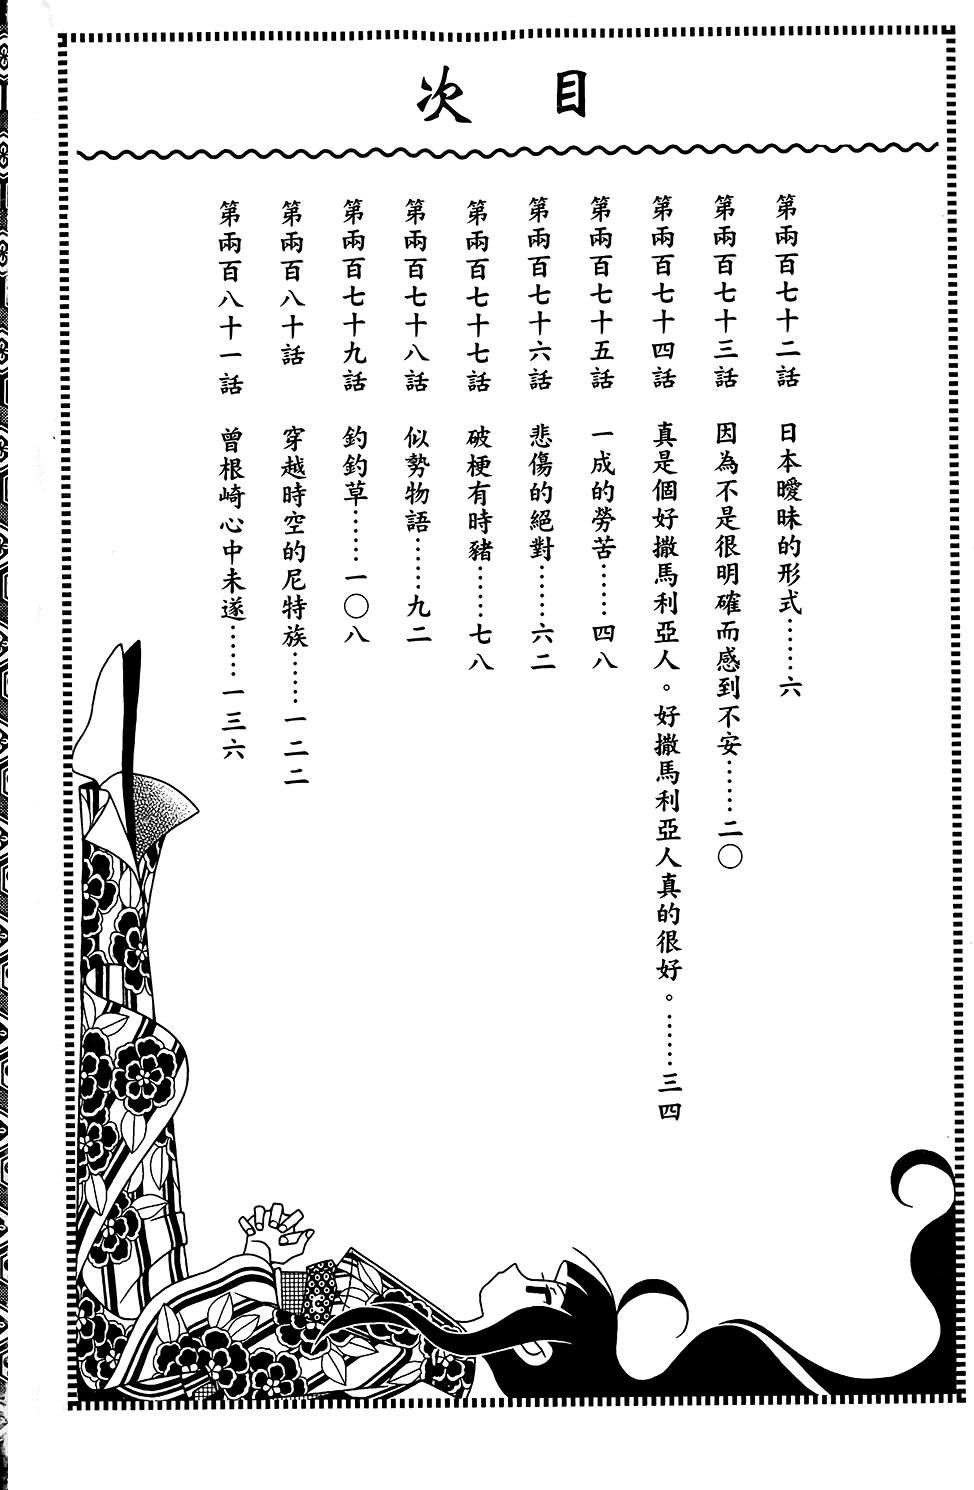 目次
第兩百七十二話 日本曖昧的形式……六
第兩百七十三話 因為不是很明確而感到不安……二〇
第兩百七十四話 真是個好撒馬利亞人。好撒馬利亞人真的很好。……三四
第兩百七十五話 一成的勞苦……四八
第兩百七十六話 悲傷的絕對……六二
第兩百七十七話 破梗有時豬……七八
第兩百七十八話 似勢物語……九二
第兩百七十九話 釣釣草……一〇八
第兩百八十話 穿越時空的尼特族……一二二
第兩百八十一話 曾根崎心中未遂……一三六